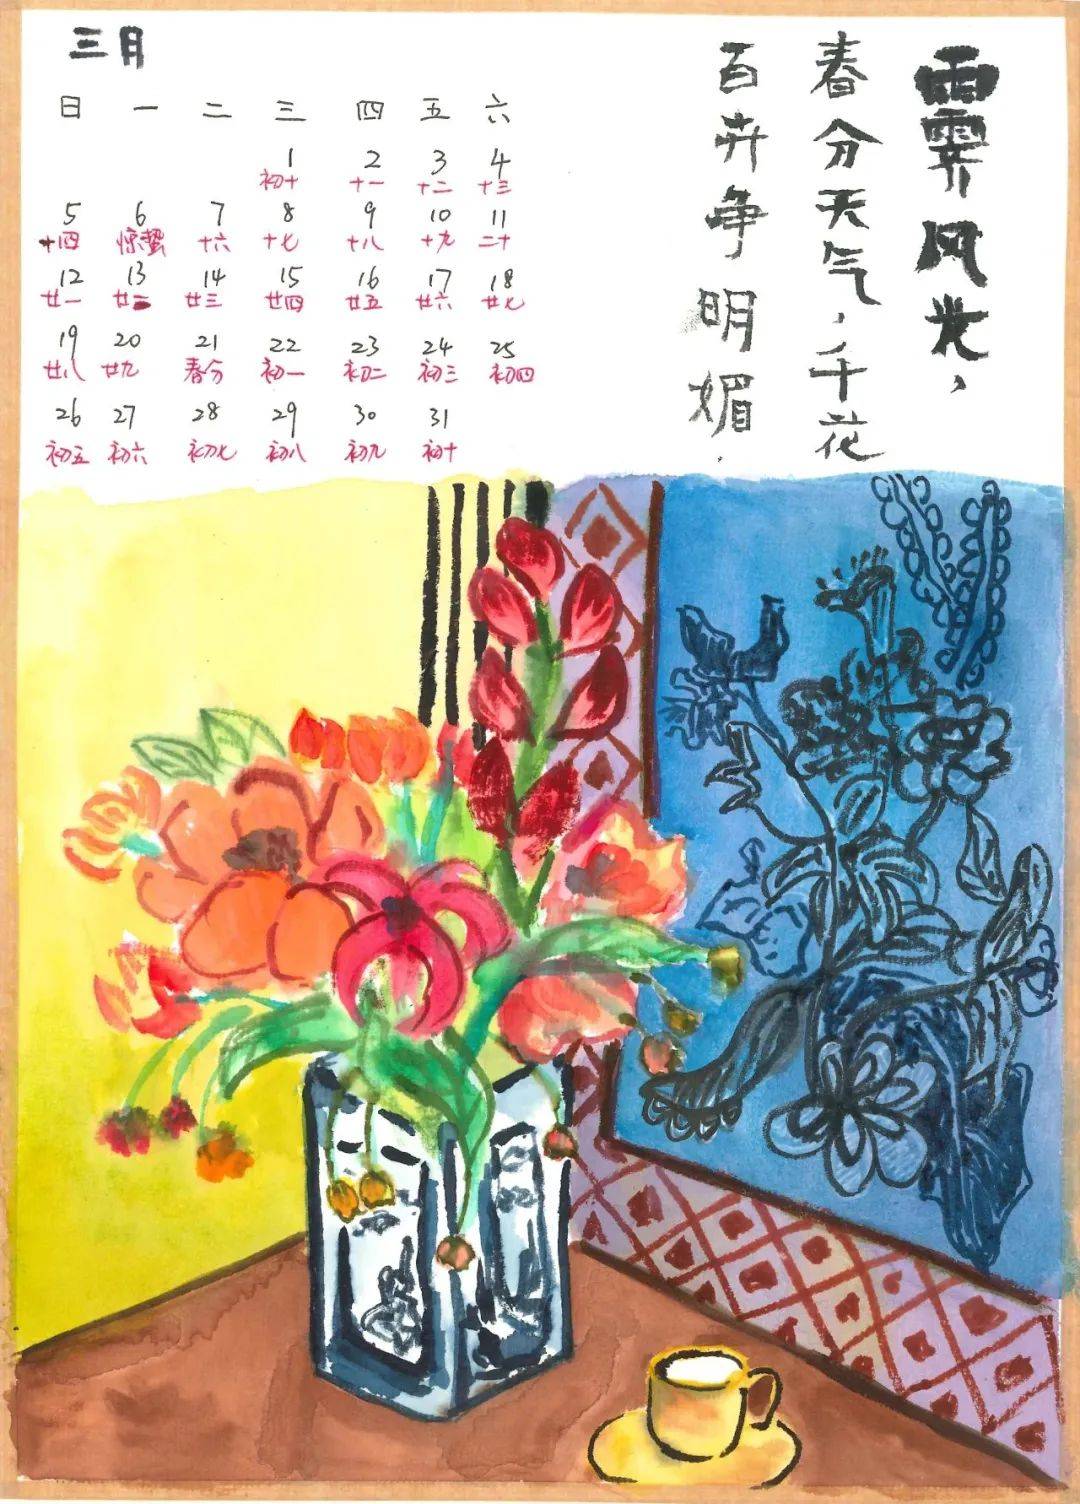 三月
日 一 二 三 四 五 六
1 2 3 4
初十 十一 十二 十三
5 6 7 8 9 10 11
十四 惊蛰 十六 十七 十八 十九 二十
12 13 14 15 16 17 18
廿一 廿二 廿三 廿四 廿五 廿六 廿七
19 20 21 22 23 24 25
廿八 廿九 春分 初一 初二 初三 初四
26 27 28 29 30 31
初五 初六 初七 初八 初九 初十
雨霁风光，
春分天气，千花
百卉争明媚.